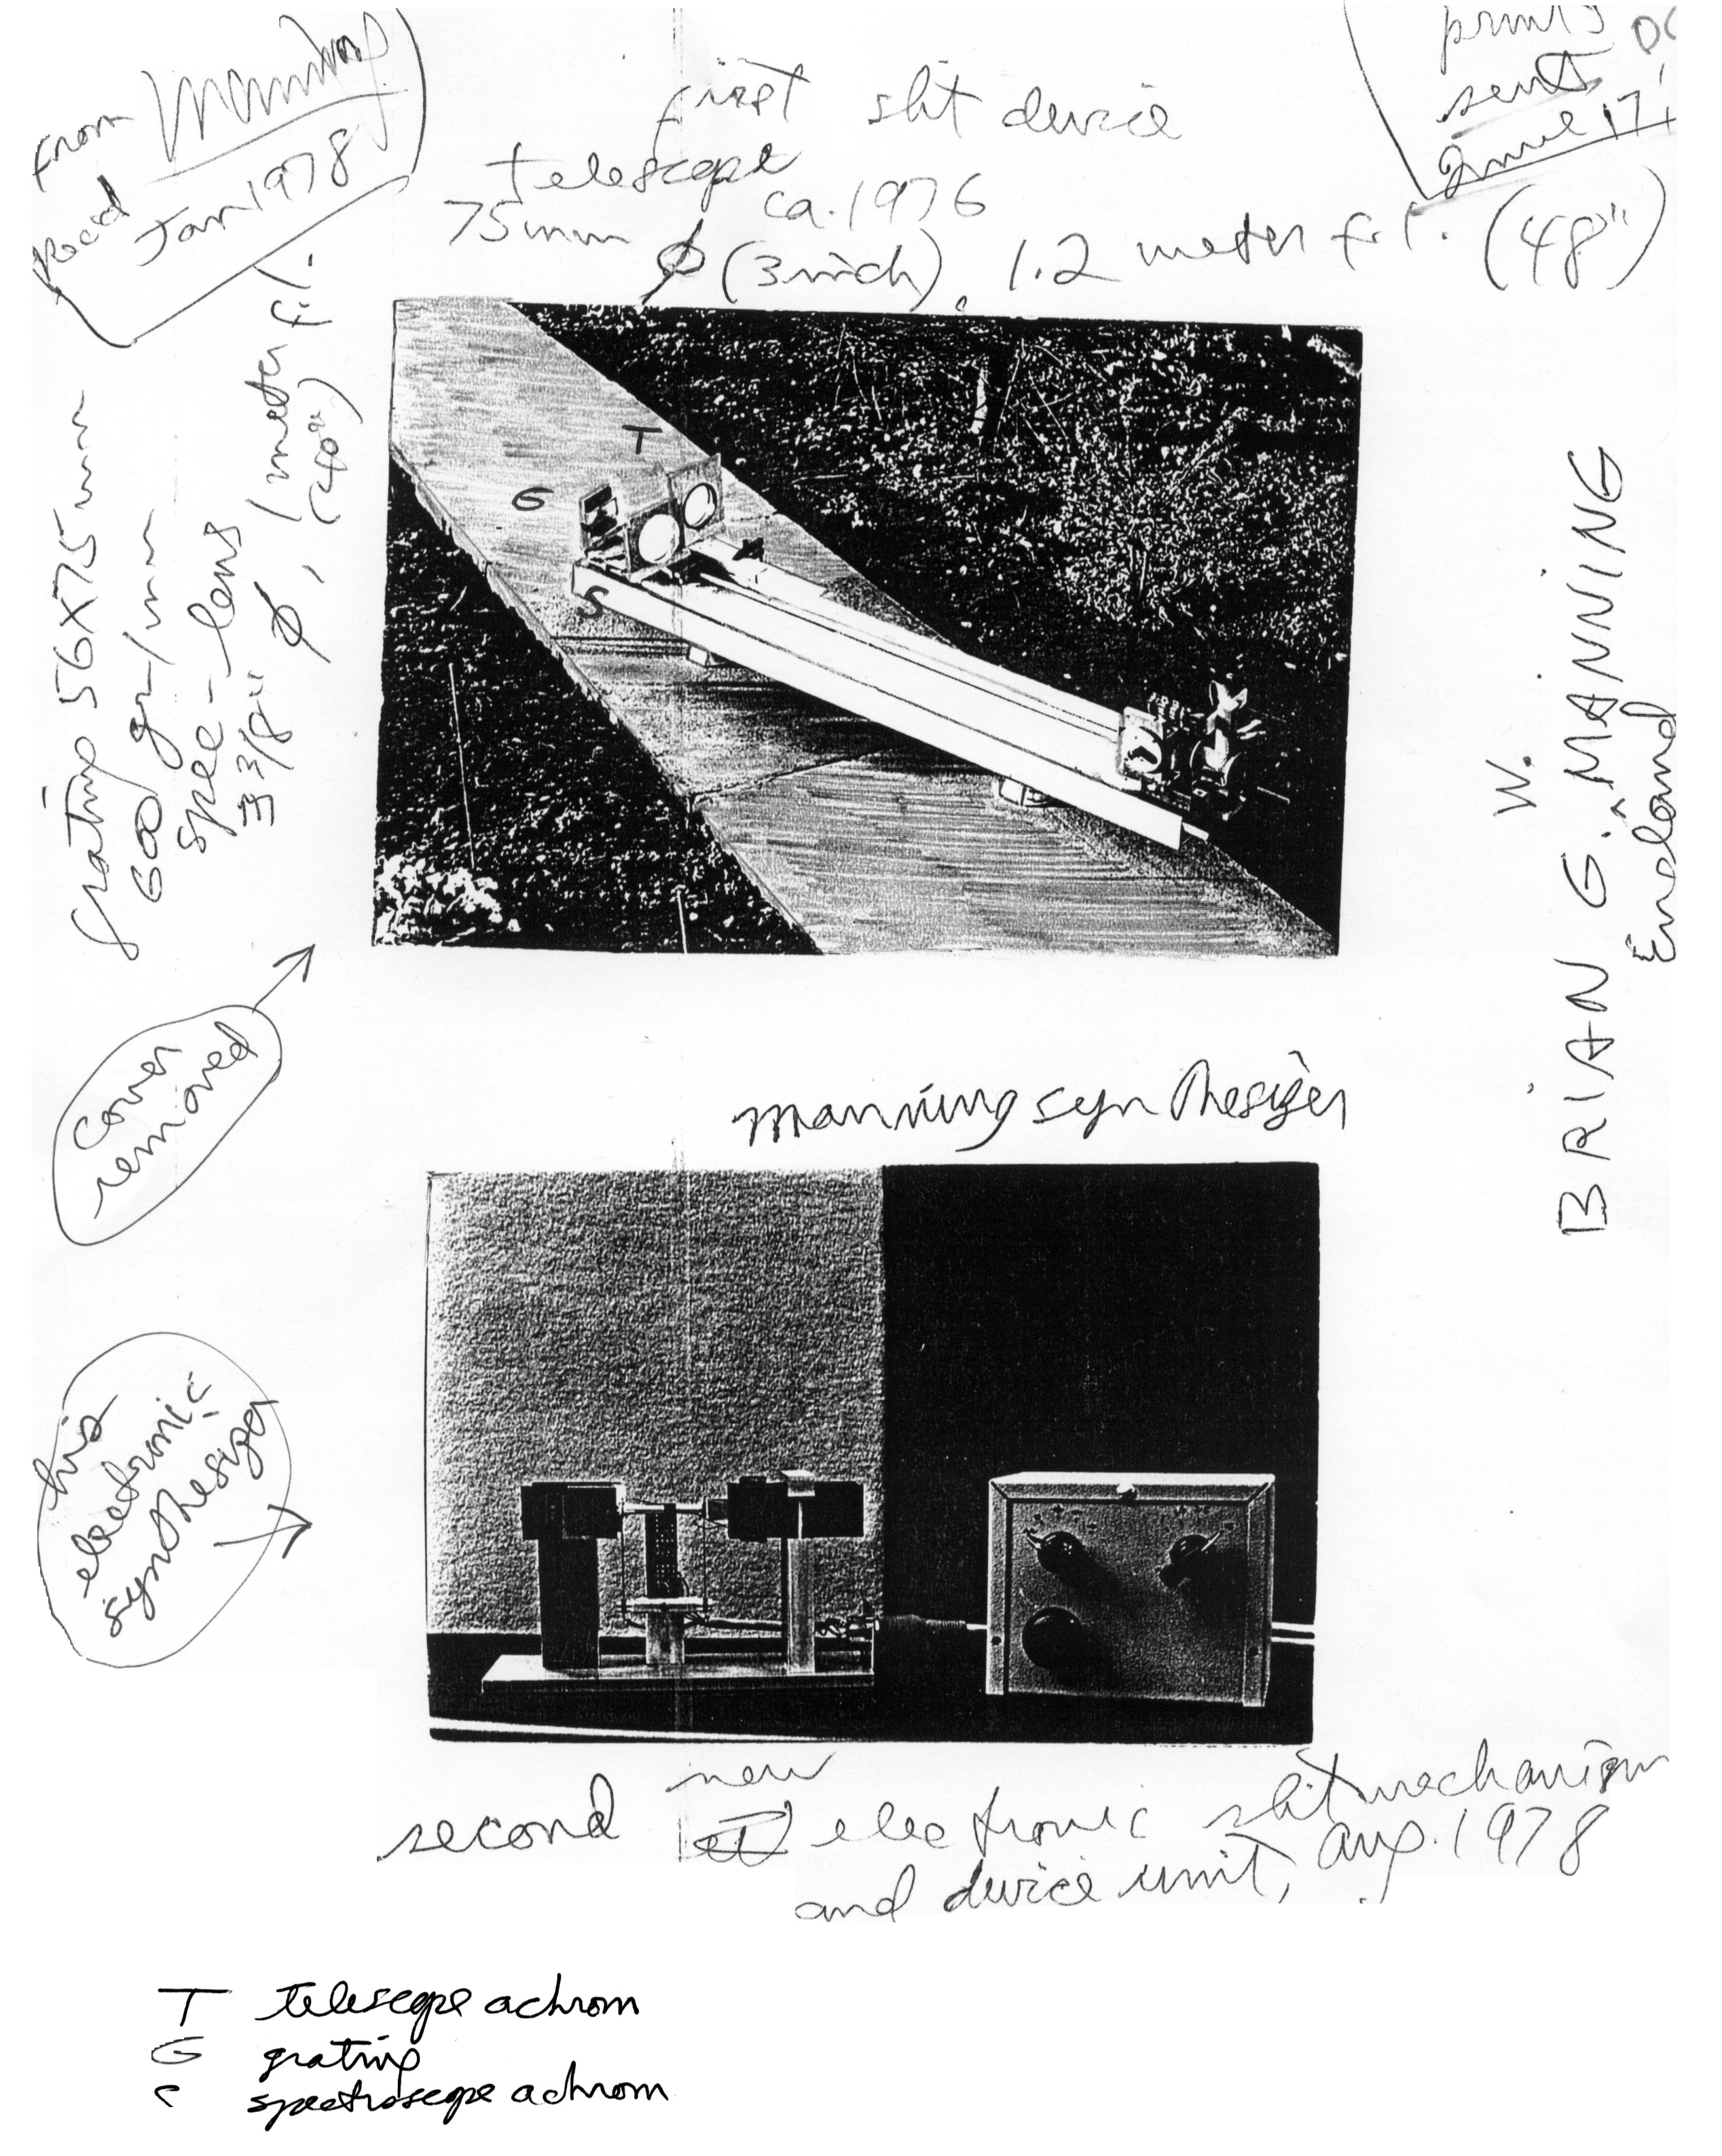 From Manning
Rec'd Jan 1978
prints
sent
June 17,
first slit device
telescope ca. 1976
75mm ϕ (3 inch), 1.2 meter f.l. (48")
grating 56X75 mm
600 gr/mm
spec-lens
3 3/8" ϕ, 1 meter f.l.
(40")
T
G
S
W.
BRIAN G. MANNING
England
cover
removed
Manning synthesizer
his
electronic
synthesizer
new
second electronic slit mechanism
and device unit, Aug. 1978
T telescope achrom
G grating
S spectroscope achrom